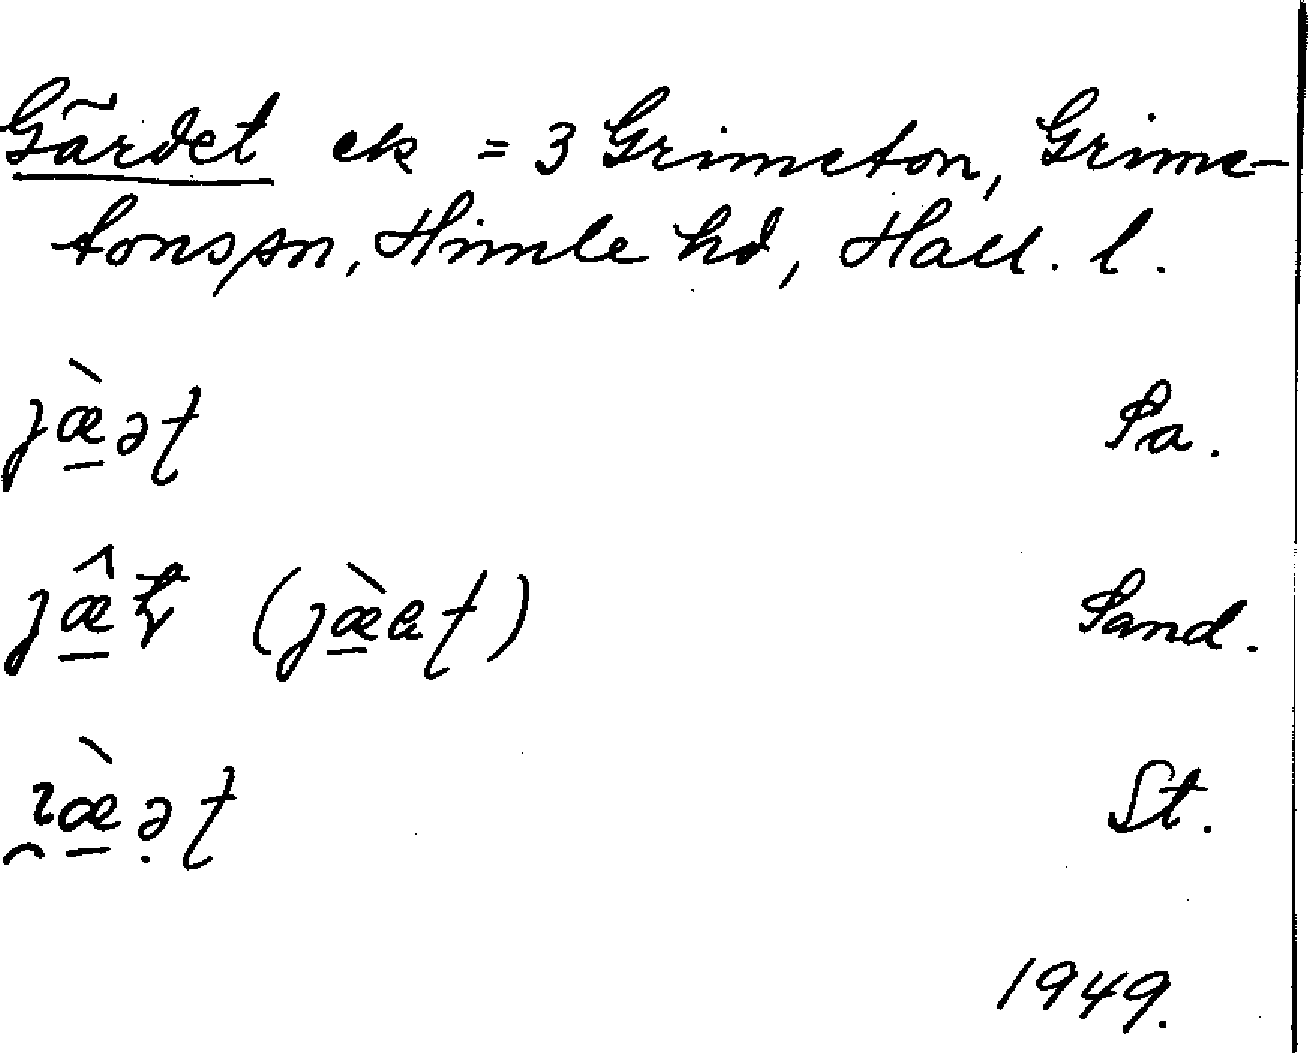 Gärdet ek = 3 Grimeton, Grime-
tons sn, Himle hd, Hall. l.
jæ̱̀əʈ Pa.
jæ̱̂ (jæ̱̀aʈ) Sand.
ɿ̯æ̱̀ə̣ʈ St.
1949.